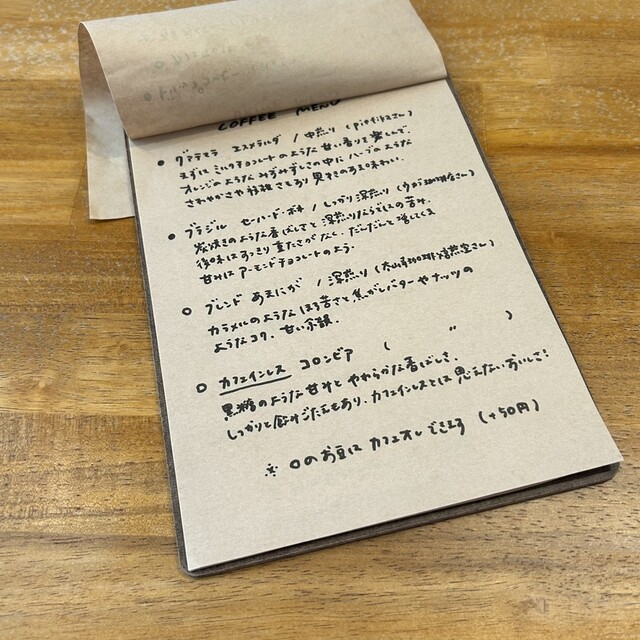 COFFEE MENU
● グアテマラ エスメラルダ / 中煎り (さん)
まずはミルクチョコレートのような甘い香りを楽しんで。
オレンジのようなみずみずしさの中にハーブのような
さわやかさや複雑さもあり 飲みごたえのある味わい。
● ブラジル セハード・ / しっかり深煎り (珈琲店さん)
炭焼きのような香ばしさと深煎りならではの苦み。
後味はすっきり重たさがなく、だんだんと増してくる
甘みはアーモンドチョコレートのよう。
○ ブレンド あまにが / 深煎り (珈琲焙煎室さん)
カラメルのようなほろ苦さと焦がしバターやナッツの
ようなコク。甘い余韻。
○ カフェインレス コロンビア ( 〃 )
黒糖のような甘みとやわらかな香ばしさ。
しっかりと飲みごたえもあり、カフェインレスとは思えないおいしさ!
※ ○のお豆は カフェオレできます (+50円)